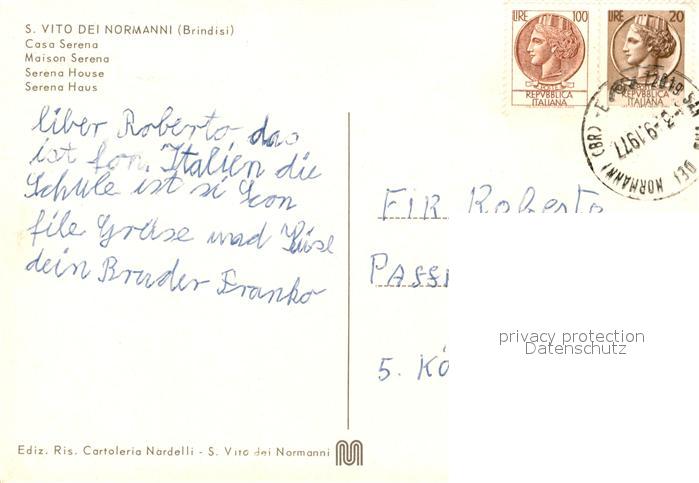 S. VITO DEI NORMANNI (Brindisi)
Casa Serena
Maison Serena
Serena House
Serena Haus
LIRE 100
POSTE
REPVBBLICA
ITALIANA
LIRE 20
REPVBBLICA
ITALIANA
DEI NORMANNI (BR)
-9.1977
liber Roberto das
ist fon Italien die
Schule ist si Son
file Gräse und Küse
dein Bruder Franko
FÜR Roberto
PASS
5. KÖ
privacy protection
Datenschutz
Ediz. Ris. Cartoleria Nardelli - S. Vito dei Normanni